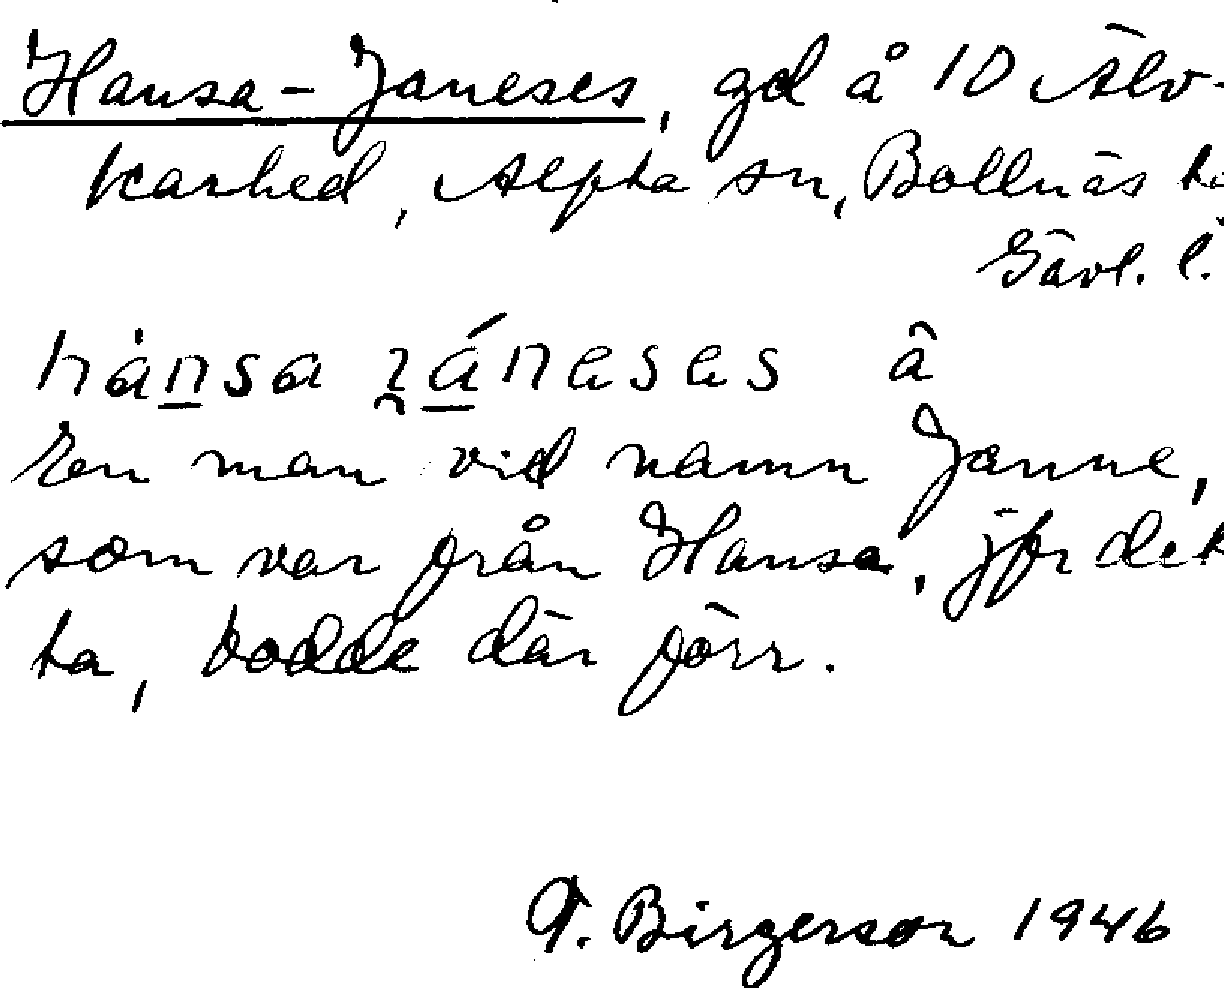 Hansa-Janeses, gd å 10 Älv-
karhed, Alfta sn, Bollnäs
Gävl. l.
hànsa já̱neses â
En man vid namn Janne,
som var från Hansa, jfr det
ta, bodde där förr.
T. Birgerson 1946